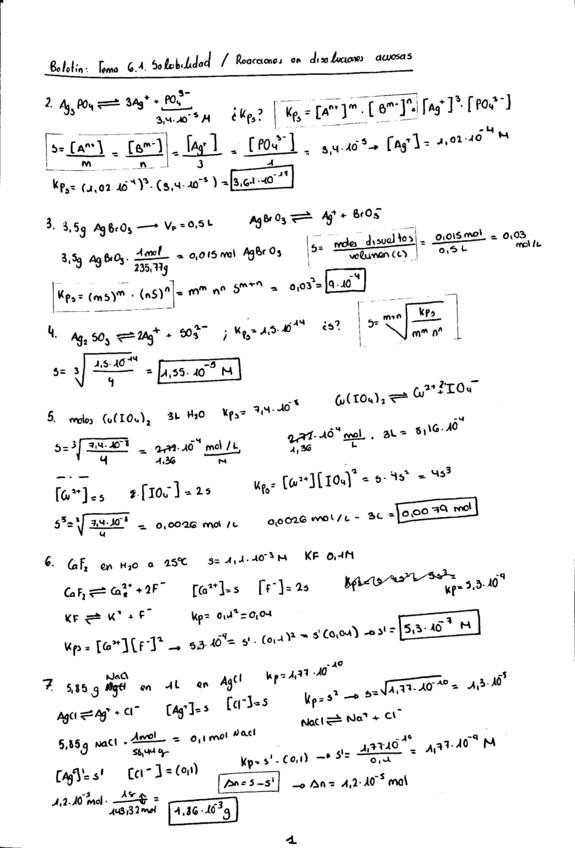 Boletín: Tema 6.1. Solubilidad / Reacciones en disoluciones acuosas
2. Ag₃PO₄ ⇌ 3Ag⁺ + PO₄³⁻ ¿Kps? Kps = [Aⁿ⁺]ᵐ · [Bᵐ⁻]ⁿ = [Ag⁺]³ · [PO₄³⁻]
3,4·10⁻⁵ M
S = [Aⁿ⁺]/m = [Bᵐ⁻]/n = [Ag⁺]/3 = [PO₄³⁻]/1 = 3,4·10⁻⁵ → [Ag⁺] = 1,02·10⁻⁴ M
Kps = (1,02·10⁻⁴)³ · (3,4·10⁻⁵) = 3,61·10⁻¹⁷
3. 3,5g AgBrO₃ → V_F = 0,5L AgBrO₃ ⇌ Ag⁺ + BrO₃⁻
3,5g AgBrO₃ · 1mol/235,77g = 0,015 mol AgBrO₃ S = moles disueltos/volumen (L) = 0,015 mol/0,5 L = 0,03 mol/L
Kps = (mS)ᵐ · (nS)ⁿ = mᵐ nⁿ Sᵐ⁺ⁿ = 0,03² = 9·10⁻⁴
4. Ag₂SO₃ ⇌ 2Ag⁺ + SO₃²⁻ ; Kps = 1,5·10⁻¹⁴ ¿s? S = ᵐ⁺ⁿ√(Kps/mᵐ nⁿ)
S = ³√(1,5·10⁻¹⁴/4) = 1,55·10⁻⁵ M
5. moles Cu(IO₄)₂ 3L H₂O Kps = 7,4·10⁻⁸ Cu(IO₄)₂ ⇌ Cu²⁺ + 2IO₄⁻
S = ³√(7,4·10⁻⁸/4) = 1,36·10⁻⁴ mol/L M 1,36·10⁻⁴ mol/L · 3L = 8,16·10⁻⁴
[Cu²⁺] = s 2·[IO₄⁻] = 2s Kps = [Cu²⁺][IO₄]² = s · 4s² = 4s³
S³ = ³√(7,4·10⁻⁸/4) = 0,0026 mol/L 0,0026 mol/L · 3L = 0,0079 mol
6. CaF₂ en H₂O a 25ºC S = 1,1·10⁻³ M KF 0,1M
CaF₂ ⇌ Ca²⁺ + 2F⁻ [Ca²⁺] = s [F⁻] = 2s Kp = 5,3·10⁻⁹
KF ⇌ K⁺ + F⁻ Kp = 0,1² = 0,01
Kps = [Ca²⁺][F⁻]² → 5,3·10⁻⁹ = s' · (0,1)² = s'(0,01) → s' = 5,3·10⁻⁷ M
7. 5,85 g NaCl en 1L en AgCl Kp = 1,77·10⁻¹⁰
AgCl ⇌ Ag⁺ + Cl⁻ [Ag⁺] = s [Cl⁻] = s Kp = s² → s = √(1,77·10⁻¹⁰) = 1,3·10⁻⁵
NaCl ⇌ Na⁺ + Cl⁻
5,85g NaCl · 1mol/58,44g = 0,1 mol NaCl
[Ag⁺] = s' [Cl⁻] = (0,1) Kp = s' · (0,1) → s' = 1,77·10⁻¹⁰/0,1 = 1,77·10⁻⁹ M
Δn = s - s' → Δn = 1,2·10⁻⁵ mol
1,2·10⁻⁵ mol · 143,32 mol = 1,86·10⁻³ g
1